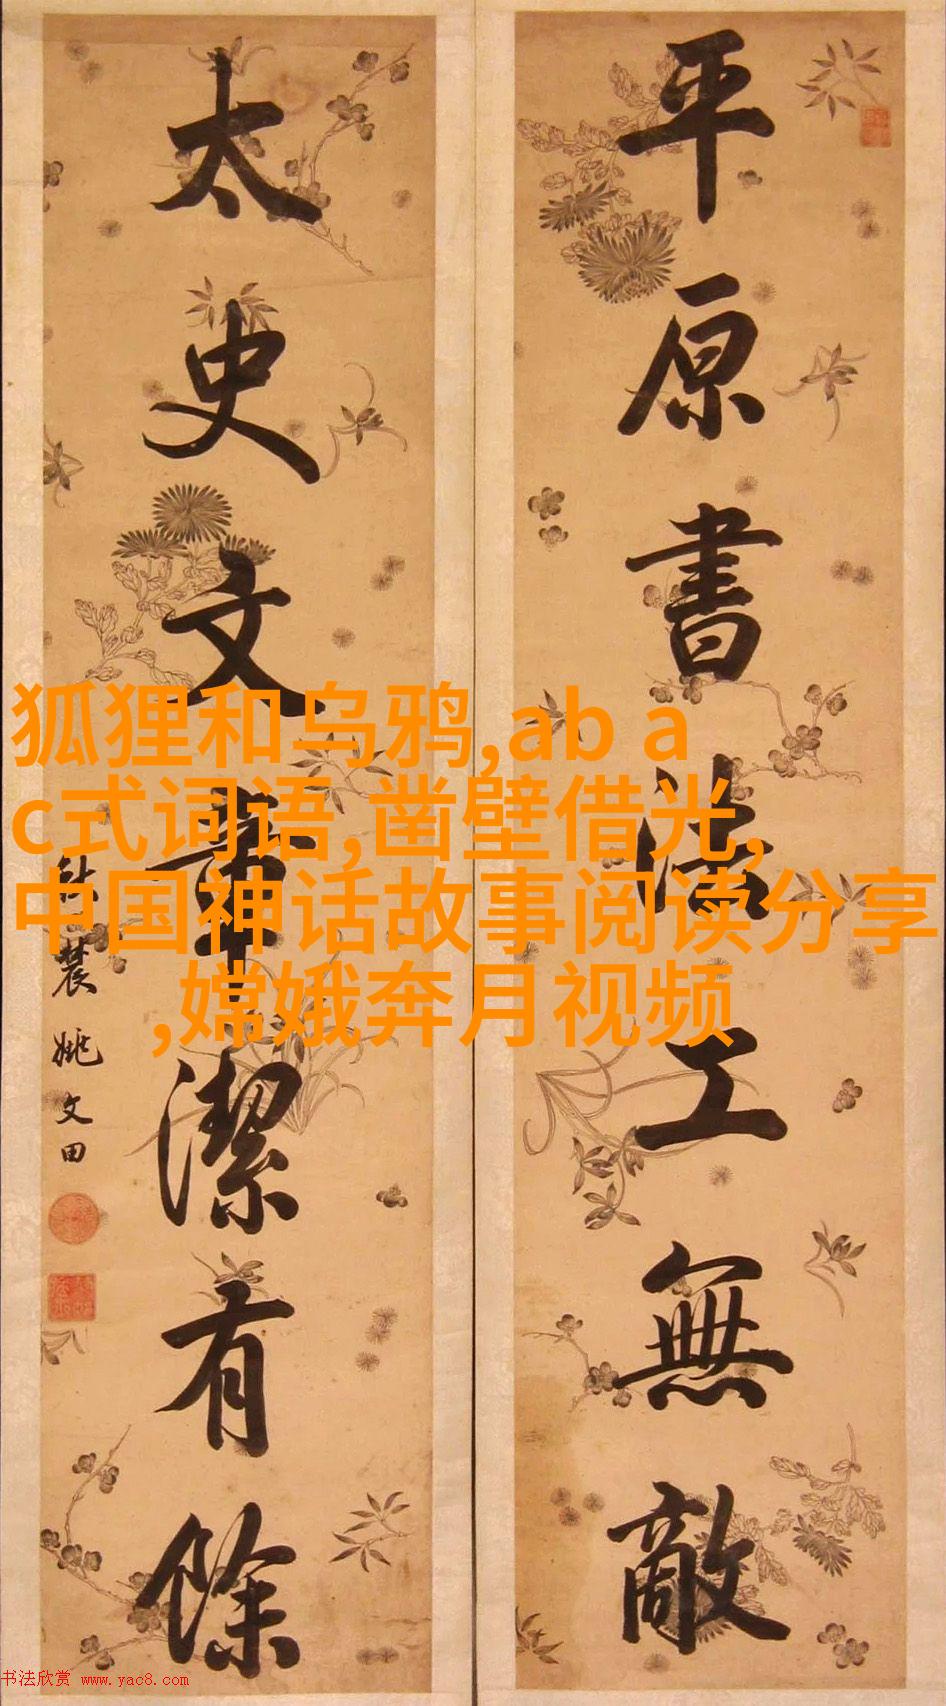 平原書法工無敵
太史文章潔有餘
秋農姚文田
狐狸和乌鸦,ab a
c式词语,凿壁借光,
中国神话故事阅读分享
,嫦娥奔月视频
书法欣赏 www.yac8.com